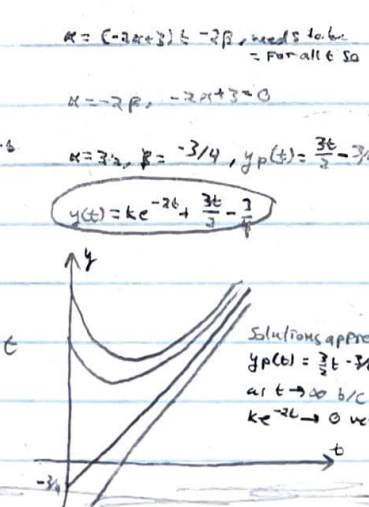 α = (-2α+3)t - 2β, needs to be
= for all t so
α = -2β, -2α+3=0
α=3/2, β= -3/4, yp(t)= 3t/2 - 3/
y(t) = ke^-2t + 3t/2 - 3/4
y
t
Solutions appro
yp(t) = 3/2 t - 3/
as t → ∞ b/c
ke^-2t → 0
t
-3/4